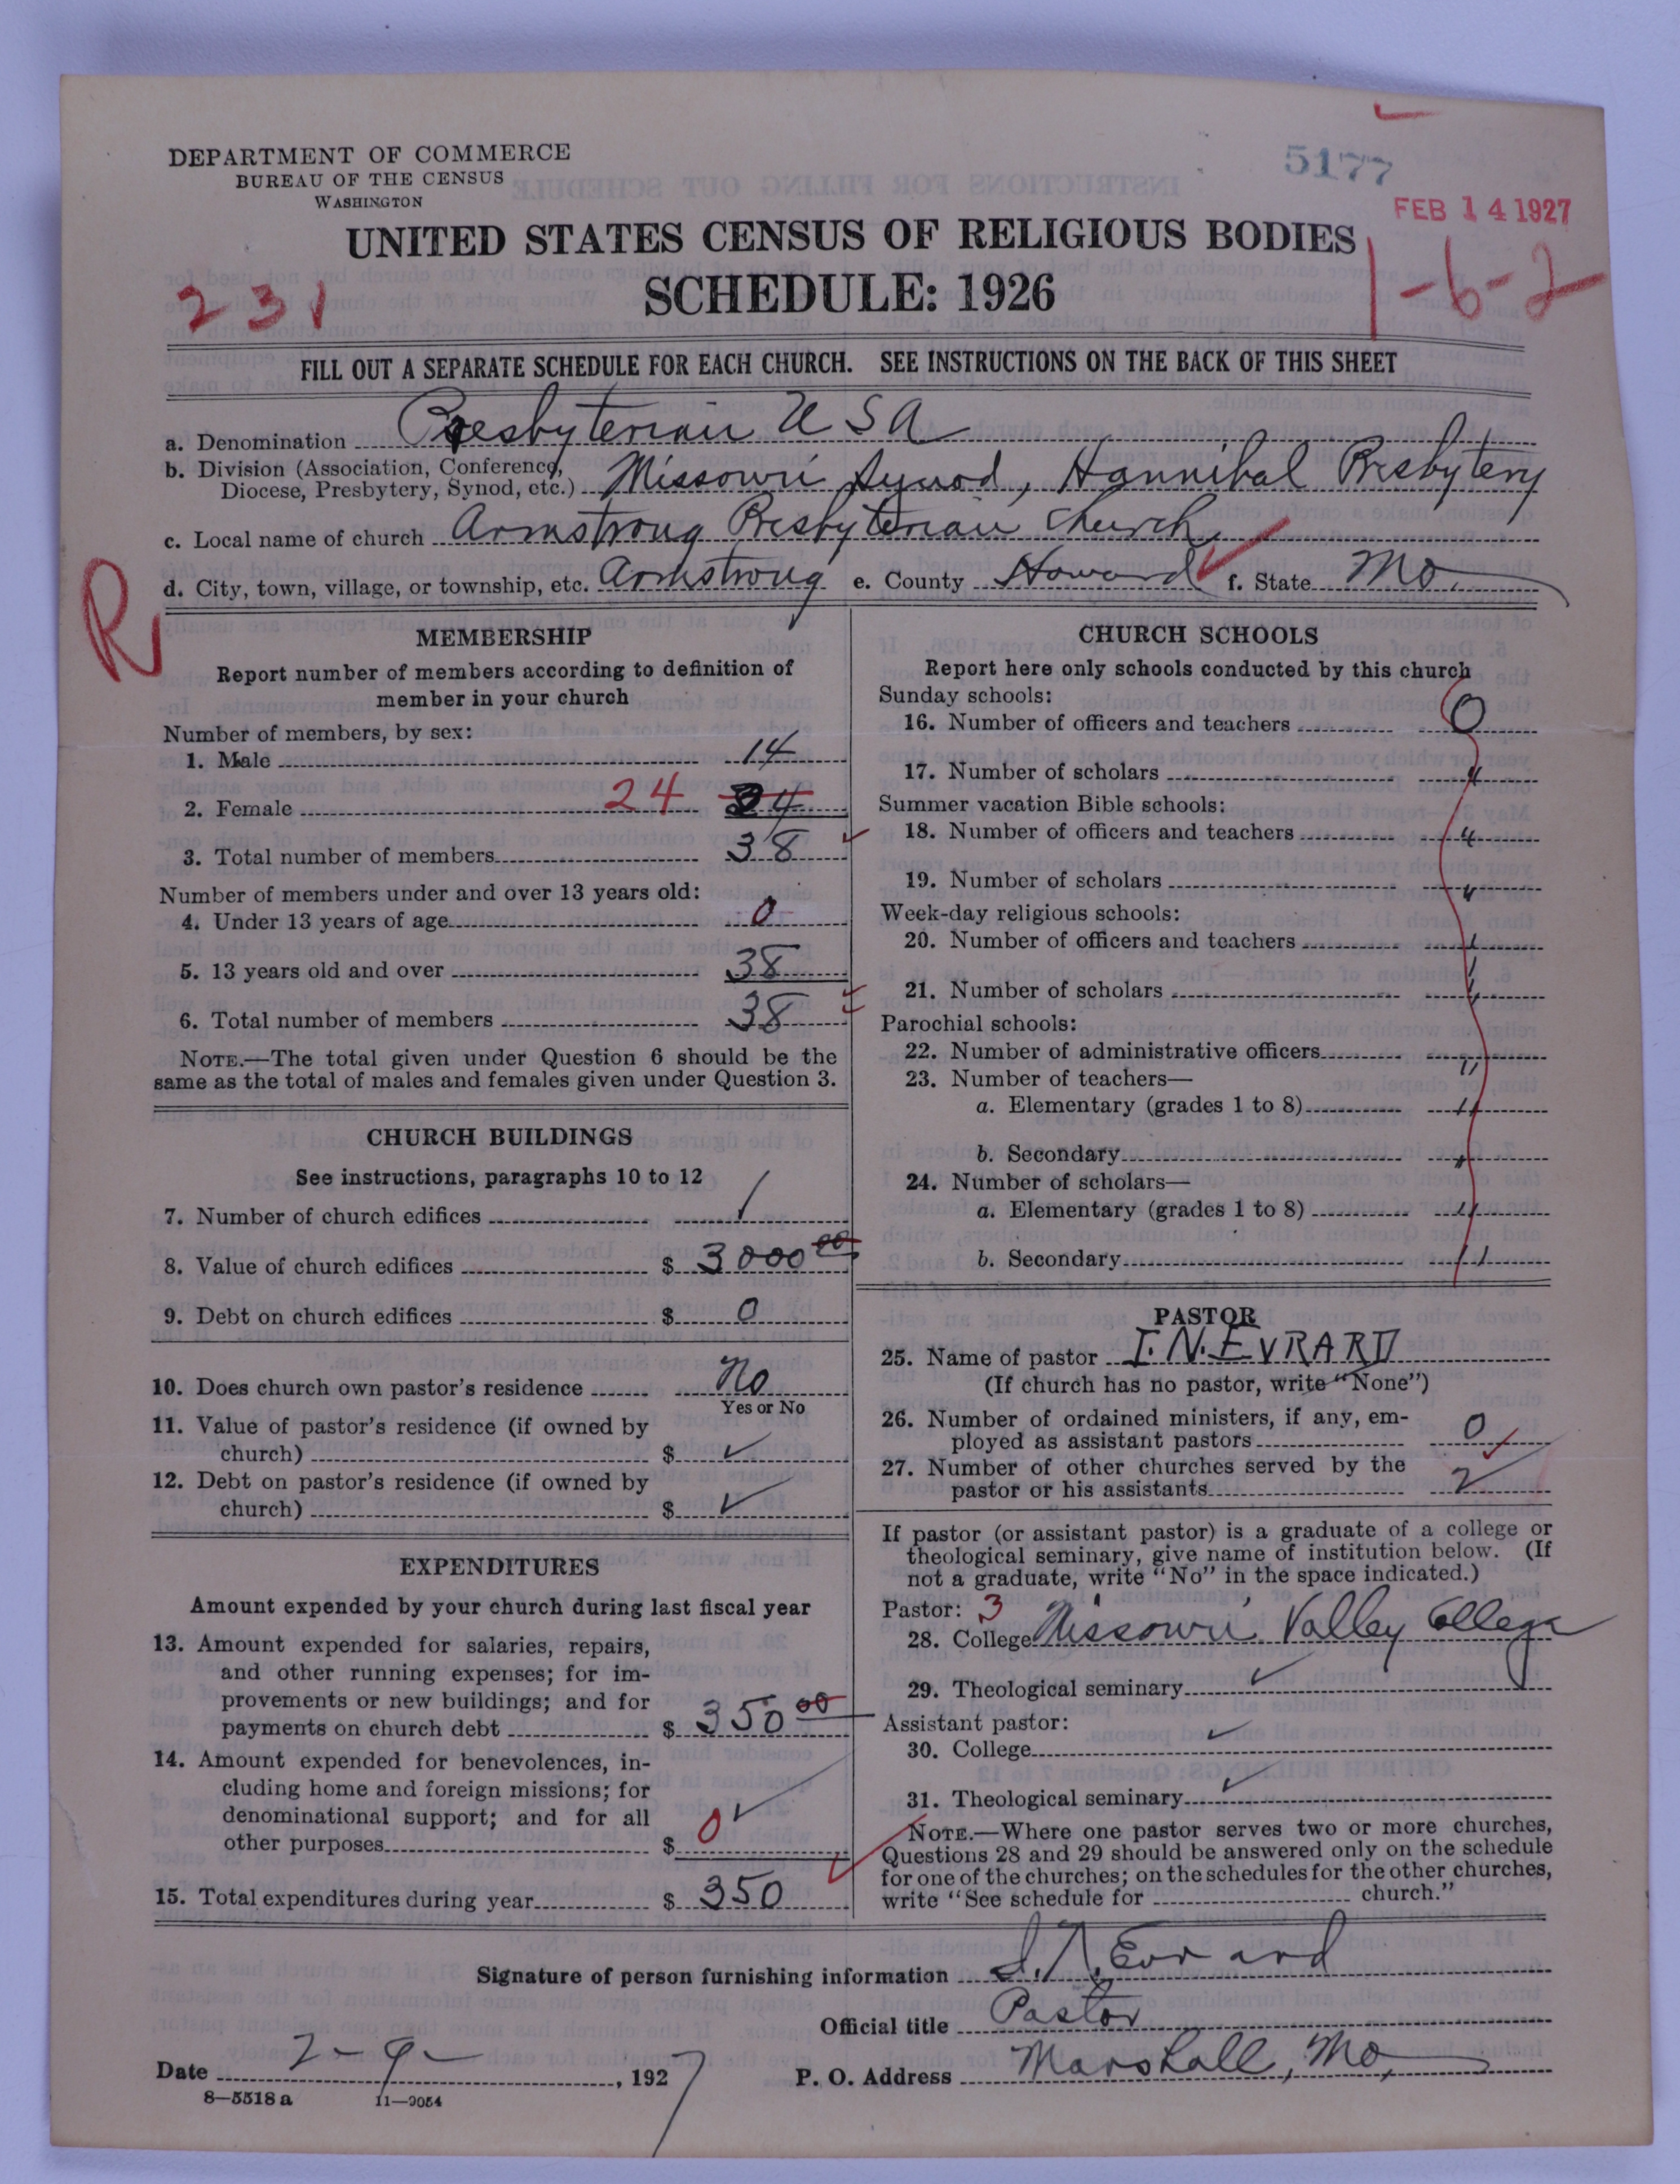 DEPARTMENT OF COMMERCE
BUREAU OF THE CENSUS
WASHINGTON
5177
FEB 14 1927
UNITED STATES CENSUS OF RELIGIOUS BODIES
SCHEDULE: 1926
231
1-6-2
FILL OUT A SEPARATE SCHEDULE FOR EACH CHURCH. SEE INSTRUCTIONS ON THE BACK OF THIS SHEET
a. Denomination Presbyterian U S A
b. Division (Association, Conference,
Diocese, Presbytery, Synod, etc.) Missouri Synod, Hannibal Presbytery
c. Local name of church Armstrong Presbyterian Church
d. City, town, village, or township, etc. Armstrong e. County Howard f. State Mo.
R
MEMBERSHIP
Report number of members according to definition of
member in your church
Number of members, by sex:
1. Male 14
2. Female 24 34
3. Total number of members 38
Number of members under and over 13 years old:
4. Under 13 years of age 0
5. 13 years old and over 38
6. Total number of members 38
NOTE.—The total given under Question 6 should be the
same as the total of males and females given under Question 3.
CHURCH BUILDINGS
See instructions, paragraphs 10 to 12
7. Number of church edifices 1
8. Value of church edifices $ 3000 00
9. Debt on church edifices $ 0
10. Does church own pastor's residence No
Yes or No
11. Value of pastor's residence (if owned by
church) $ ✓
12. Debt on pastor's residence (if owned by
church) $ ✓
EXPENDITURES
Amount expended by your church during last fiscal year
13. Amount expended for salaries, repairs,
and other running expenses; for im-
provements or new buildings; and for
payments on church debt $ 350 00
14. Amount expended for benevolences, in-
cluding home and foreign missions; for
denominational support; and for all
other purposes $ 0 ✓
15. Total expenditures during year $ 350
CHURCH SCHOOLS
Report here only schools conducted by this church
Sunday schools:
16. Number of officers and teachers 0
17. Number of scholars "
Summer vacation Bible schools:
18. Number of officers and teachers "
19. Number of scholars "
Week-day religious schools:
20. Number of officers and teachers "
21. Number of scholars "
Parochial schools:
22. Number of administrative officers "
23. Number of teachers—
a. Elementary (grades 1 to 8) "
b. Secondary "
24. Number of scholars—
a. Elementary (grades 1 to 8) "
b. Secondary "
PASTOR
25. Name of pastor I. N. EVRARD
(If church has no pastor, write "None")
26. Number of ordained ministers, if any, em-
ployed as assistant pastors 0
27. Number of other churches served by the
pastor or his assistants 2
If pastor (or assistant pastor) is a graduate of a college or
theological seminary, give name of institution below. (If
not a graduate, write "No" in the space indicated.)
Pastor: 3
28. College Missouri Valley College
29. Theological seminary ✓
Assistant pastor:
30. College ✓
31. Theological seminary ✓
NOTE.—Where one pastor serves two or more churches,
Questions 28 and 29 should be answered only on the schedule
for one of the churches; on the schedules for the other churches,
write "See schedule for church."
Signature of person furnishing information I. N. Evrard
Official title Pastor
Date 2-9-, 1927 P. O. Address Marshall, Mo,
8—5518 a 11—9054